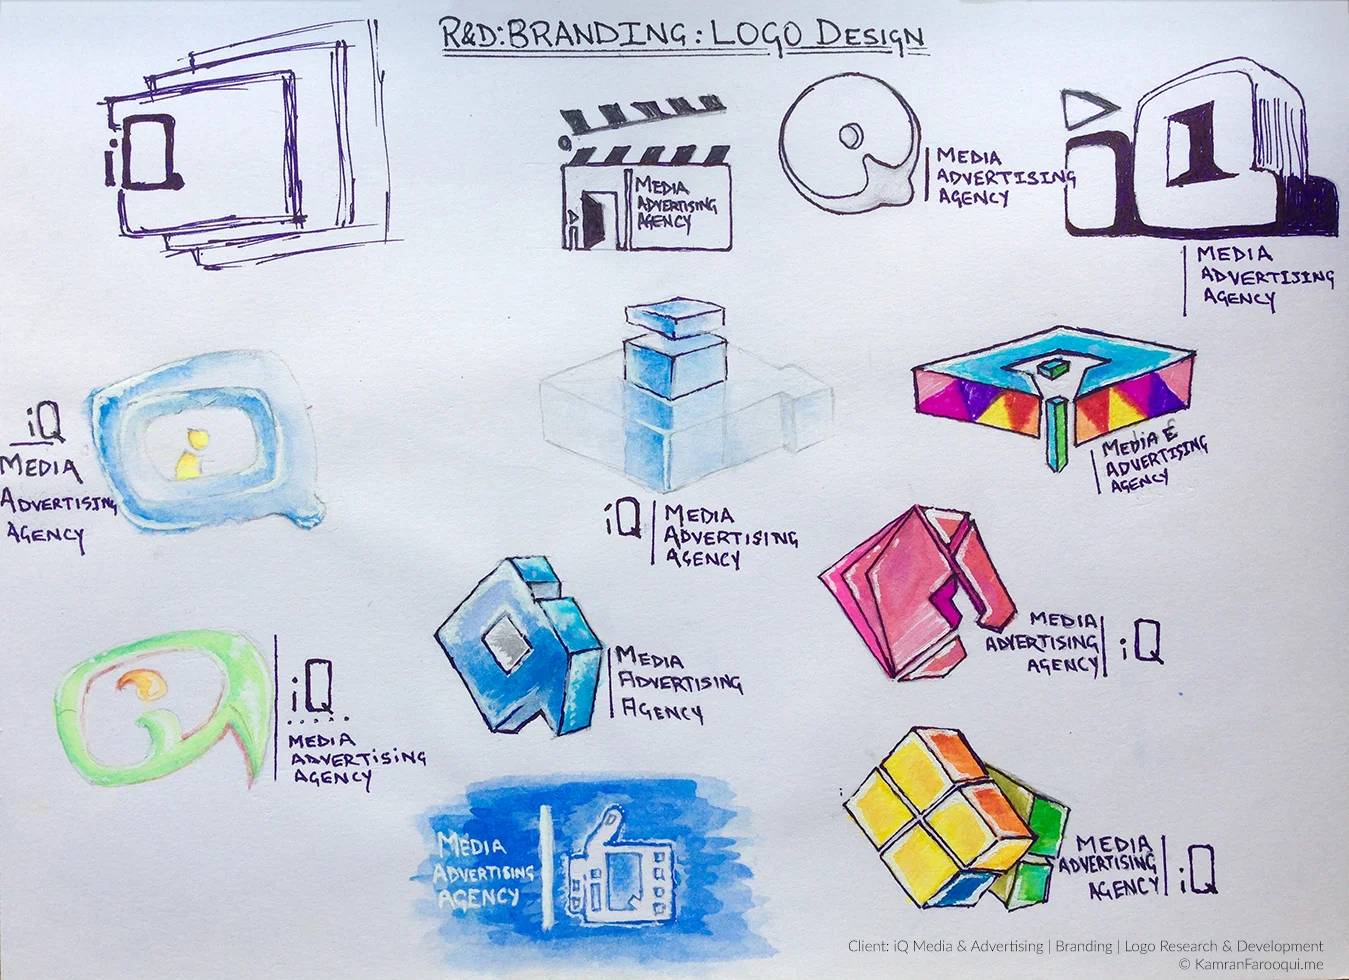 R&D: BRANDING: LOGO DESIGN
iQ
MEDIA
ADVERTISING
AGENCY
MEDIA
ADVERTISING
AGENCY
i1
MEDIA
ADVERTISING
AGENCY
iQ
MEDIA
ADVERTISING
AGENCY
iQ
MEDIA
ADVERTISING
AGENCY
MEDIA &
ADVERTISING
AGENCY
MEDIA
ADVERTISING
AGENCY
iQ
iQ
MEDIA
ADVERTISING
AGENCY
MEDIA
ADVERTISING
AGENCY
MEDIA
ADVERTISING
AGENCY
MEDIA
ADVERTISING
AGENCY
iQ
Client: iQ Media & Advertising | Branding | Logo Research & Development
© KamranFarooqui.me